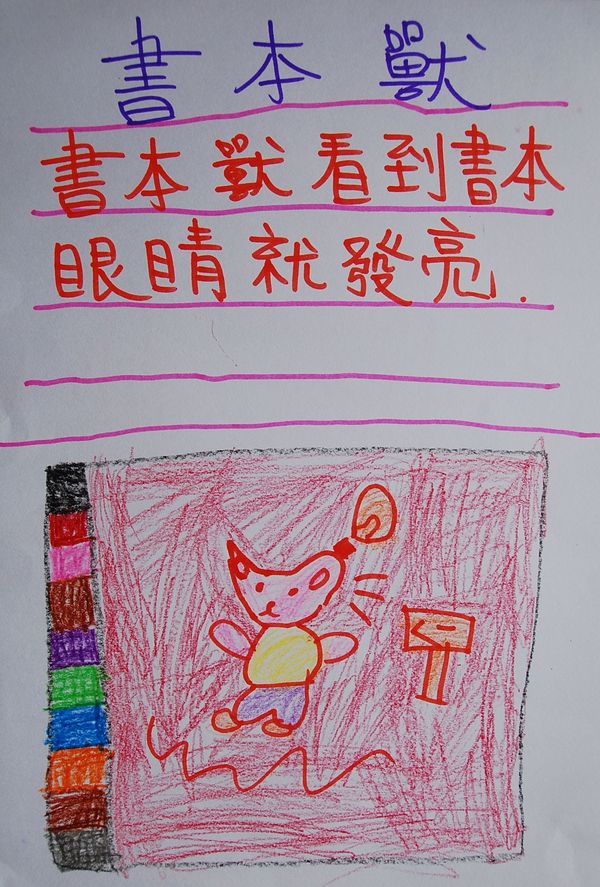 書本獸
書本獸看到書本
眼睛就發亮.